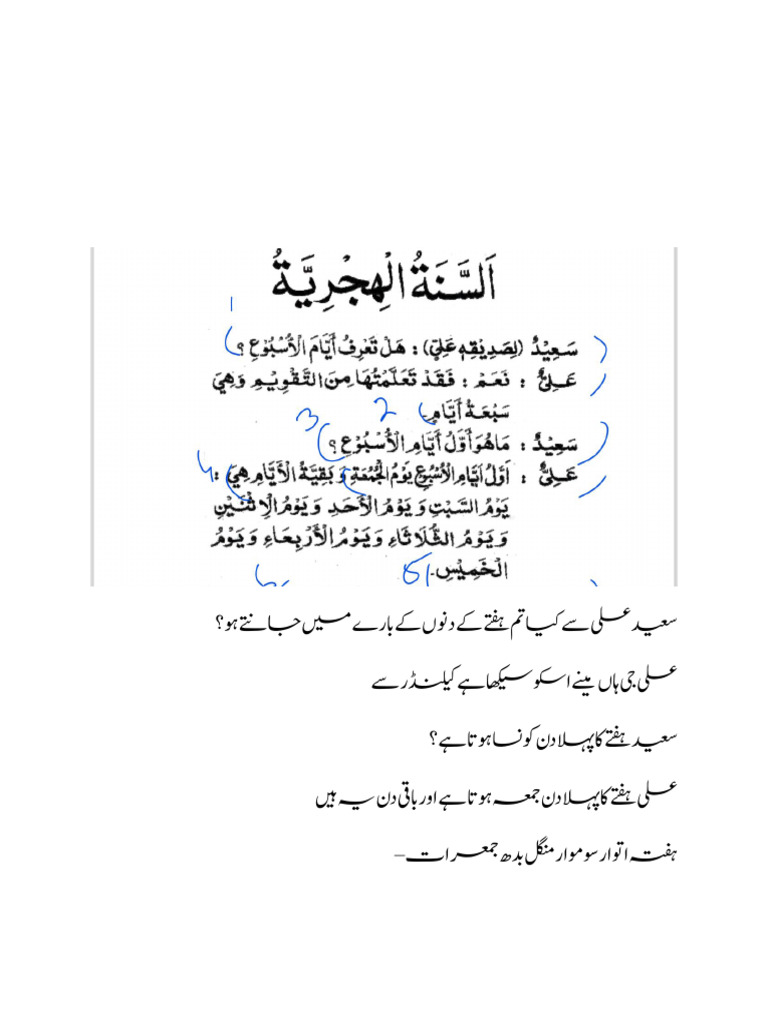 اَلسَّنَةُ الْهِجْرِيَّةُ
1
سَعِيْدٌ (لِصَدِيْقِهٖ عَلِيٍّ) : هَلْ تَعْرِفُ أَيَّامَ الْأُسْبُوْعِ ؟
عَلِيٌّ : نَعَمْ : فَقَدْ تَعَلَّمْتُهَا مِنَ التَّقْوِيْمِ وَهِيَ
سَبْعَةُ أَيَّامٍ۔ 2 3
سَعِيْدٌ : مَا هُوَ أَوَّلُ أَيَّامِ الْأُسْبُوْعِ ؟
عَلِيٌّ : اَوَّلُ اَيَّامِ الْاُسْبُوْعِ يَوْمُ الْجُمُعَةِ وَ بَقِيَّةُ الْأَيَّامِ هِيَ : 4
يَوْمُ السَّبْتِ وَ يَوْمُ الْأَحَدِ وَ يَوْمُ الْاِثْنَيْنِ
وَ يَوْمُ الثُّلَاثَاءِ وَ يَوْمُ الْأَرْبِعَاءِ وَ يَوْمُ
الْخَمِيْسِ۔ 5
سعید علی سے کیا تم ہفتے کے دنوں کے بارے میں جانتے ہو؟
علی جی ہاں مینے اسکو سیکھا ہے کیلنڈر سے
سعید ہفتے کا پہلا دن کونسا ہوتا ہے؟
علی ہفتے کا پہلا دن جمعہ ہوتا ہے اور باقی دن یہ ہیں
ہفتہ اتوار سوموار منگل بدھ جمعرات –